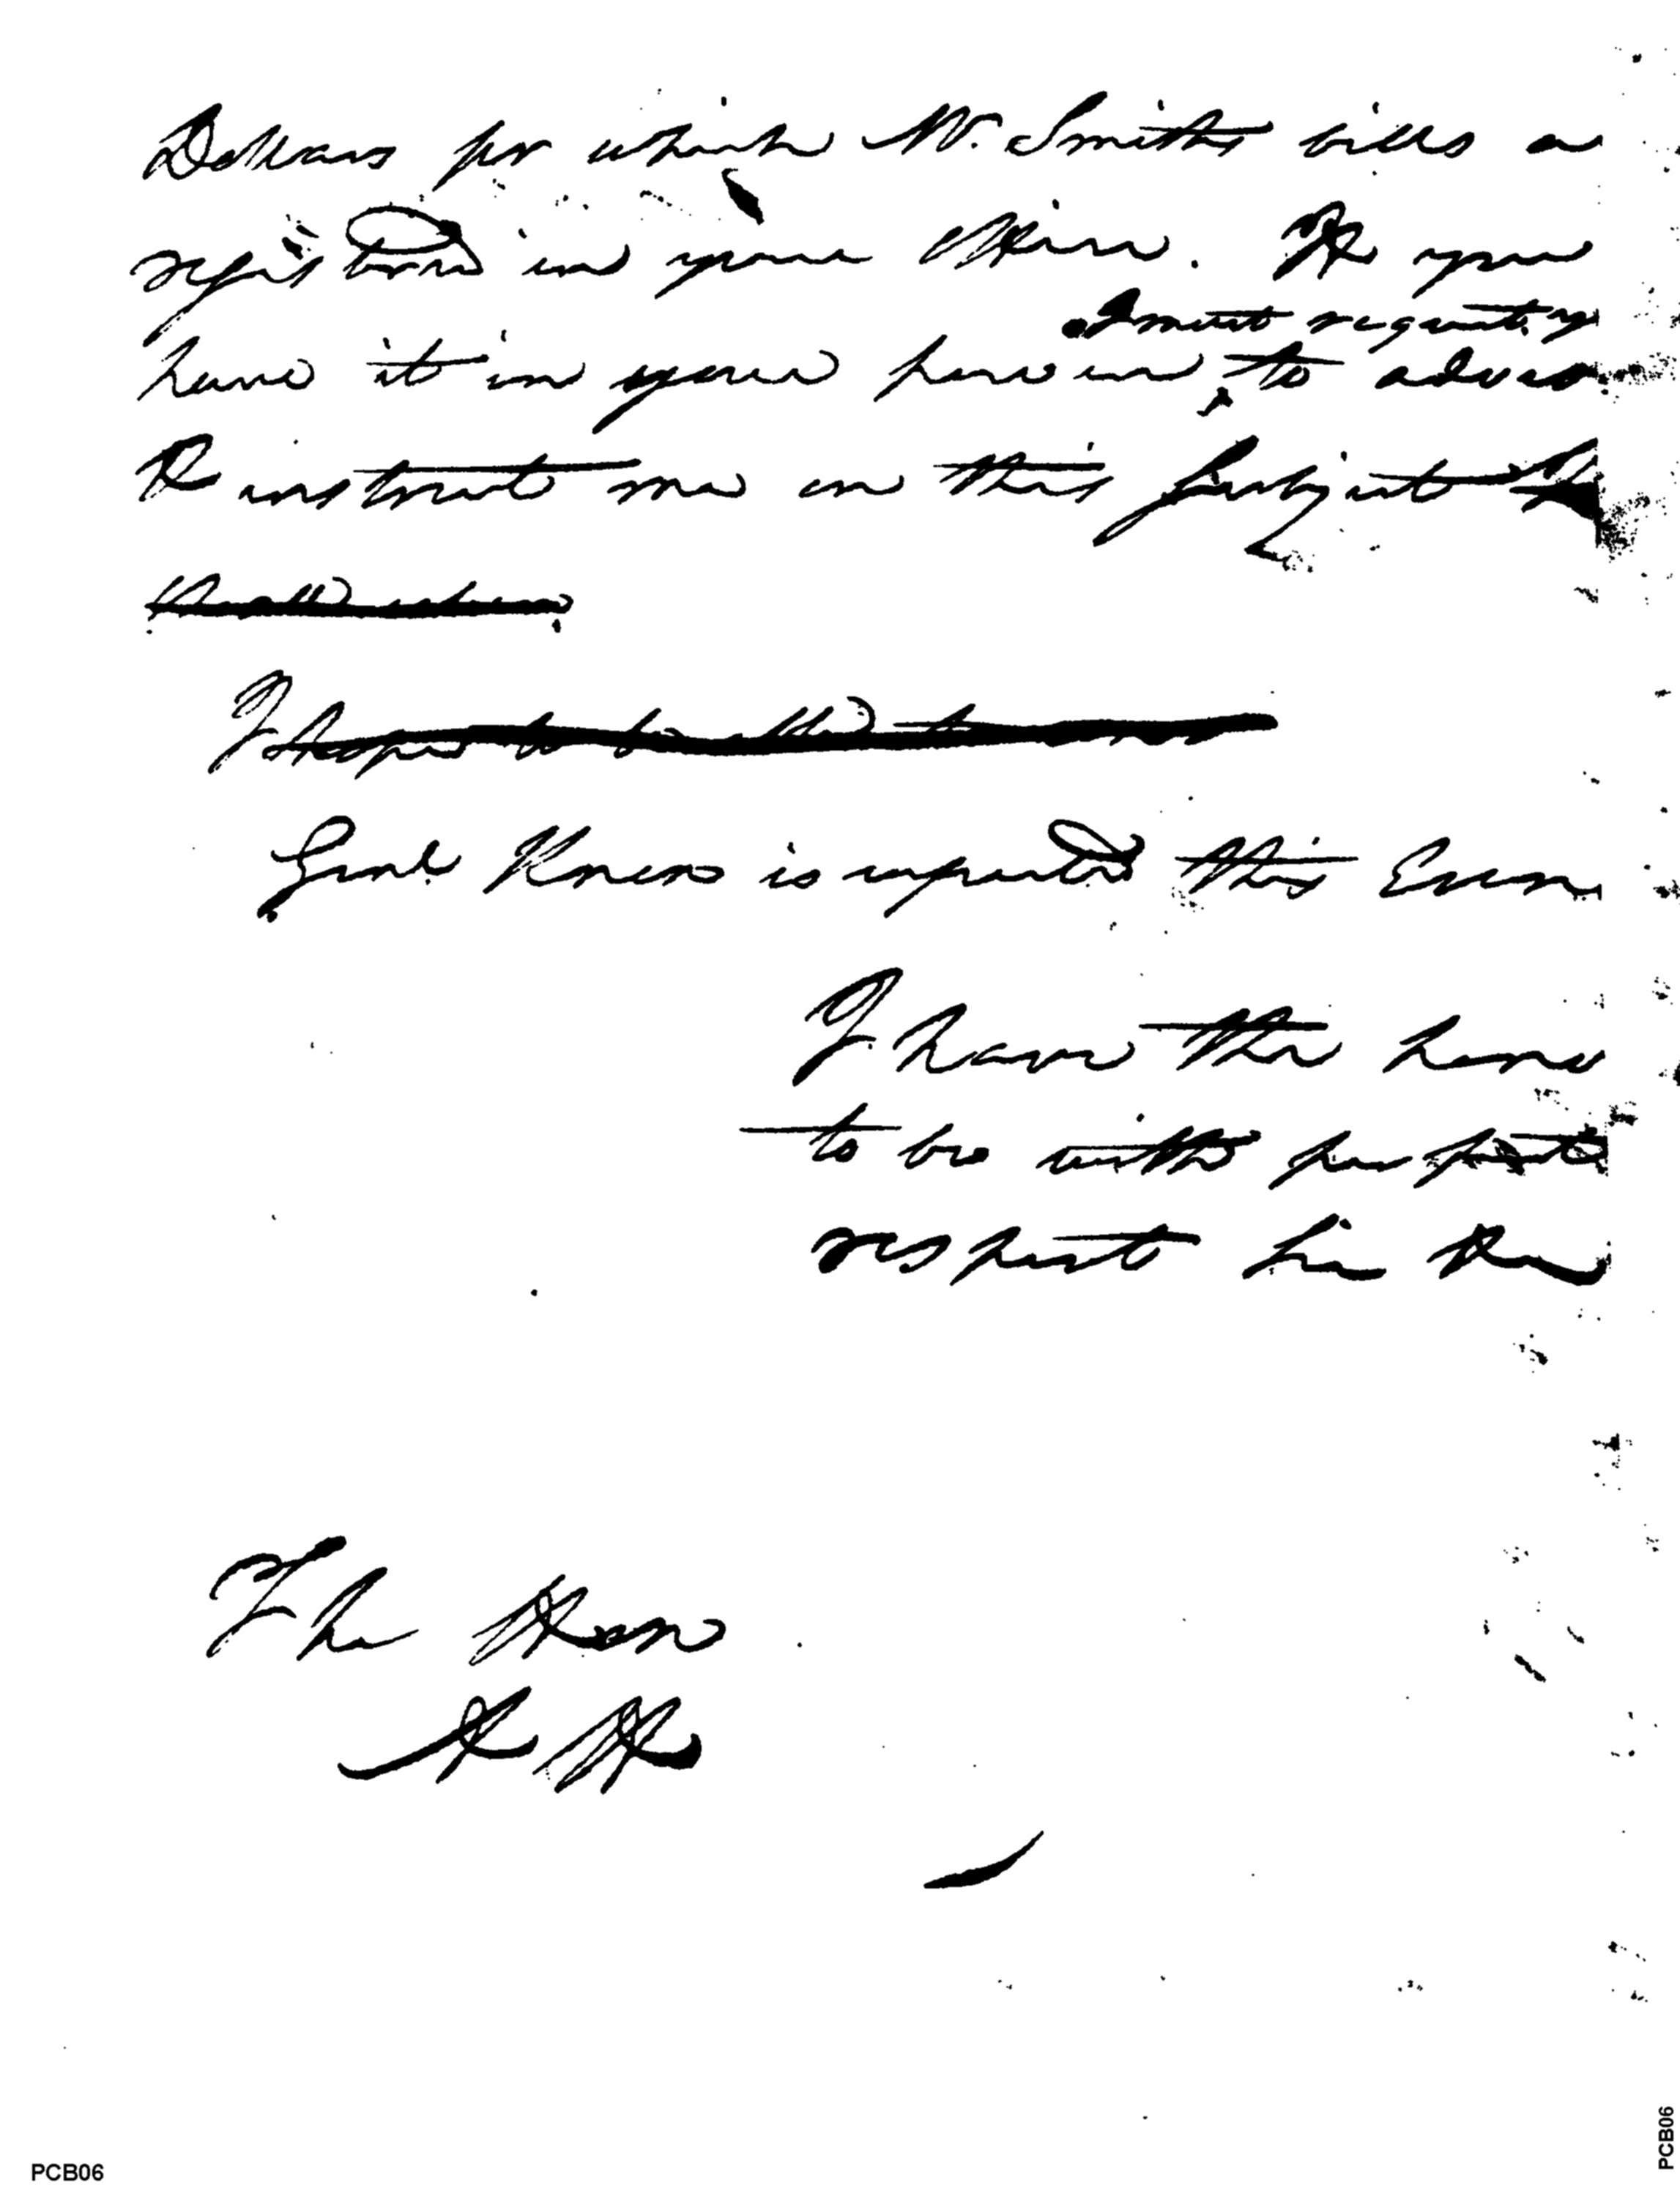 Dollars for which Mr. Smiths bills a
registered in your Office. If you
I must request y
have it in your power to advise
& instruct me on this subject
Genl Knox is expected this Even
I have the hono
to be with perfect
respect Sir &
The Hon
PCB06
PCB06